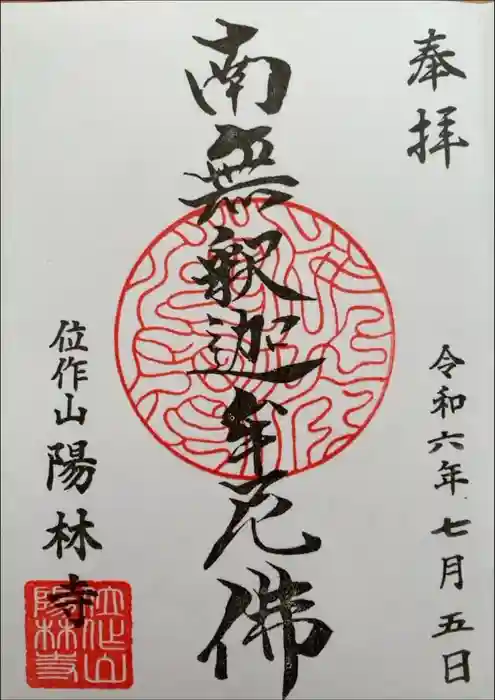 奉拝
令和六年七月五日
南無釈迦牟尼佛
位作山陽林寺
位作山
陽林寺